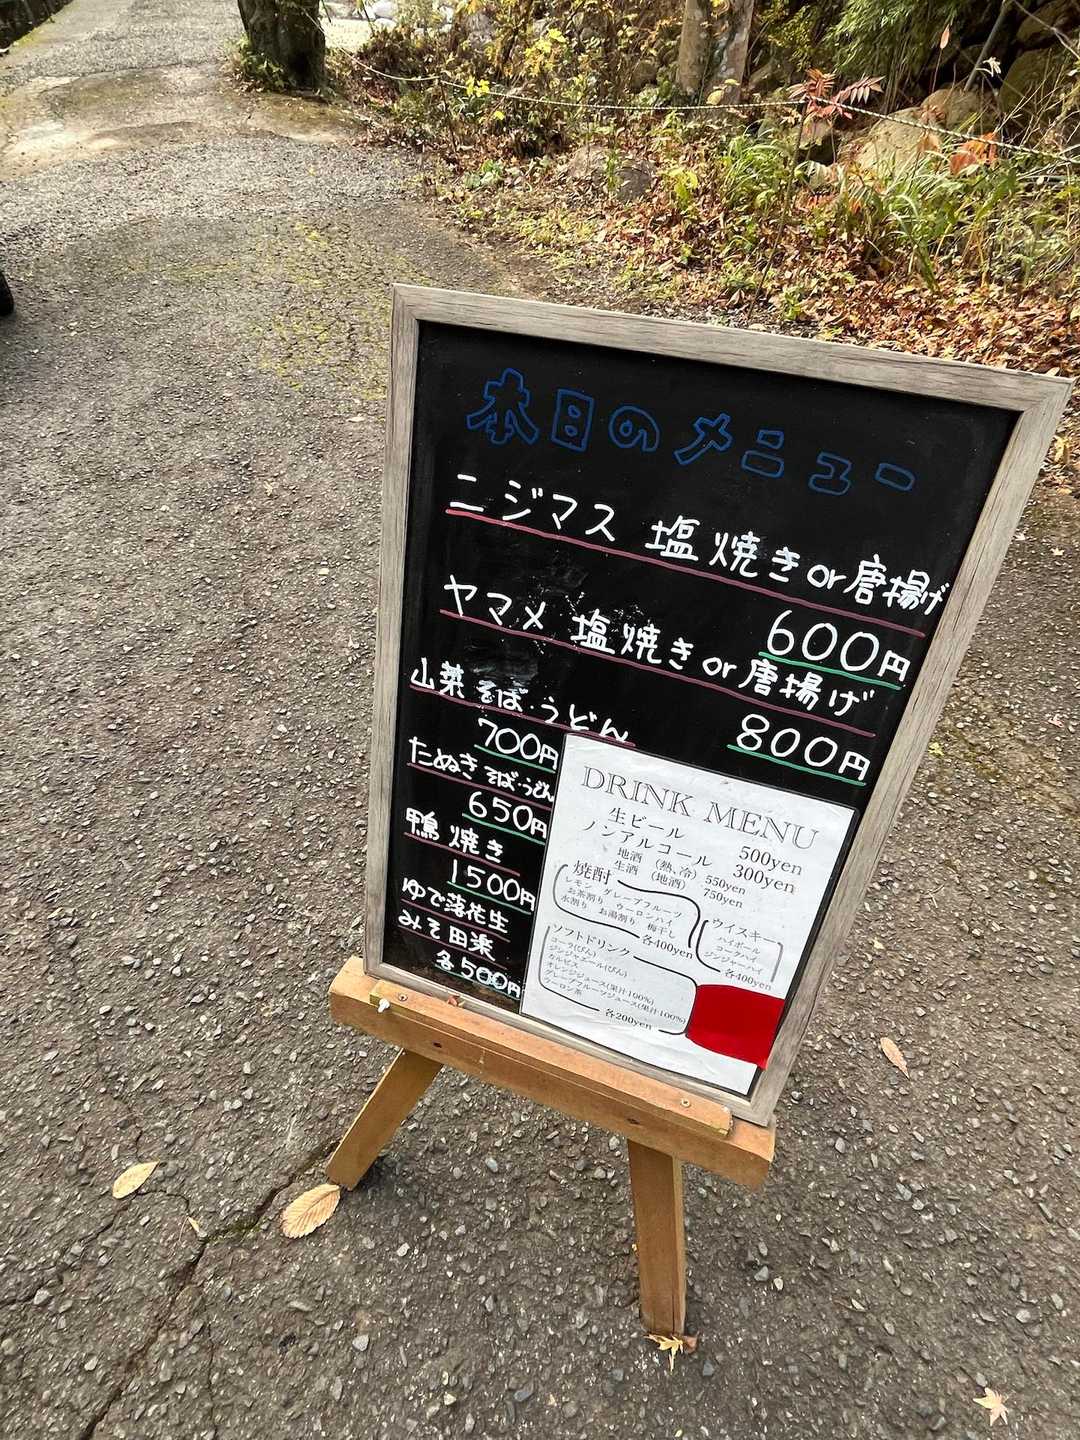 本日のメニュー
ニジマス 塩焼きor唐揚げ
600円
ヤマメ 塩焼きor唐揚げ
800円
山菜そば・うどん
700円
たぬきそば・うどん
650円
鴨焼き
1500円
ゆで落花生
みそ田楽
各500円
DRINK MENU
生ビール 500yen
ノンアルコール 300yen
地酒 (熱、冷) 550yen
生酒 (地酒) 750yen
焼酎
レモン グレープフルーツ
お茶割り ウーロンハイ
水割り お湯割り 梅干し
各400yen
ウイスキー
ハイボール
コークハイ
ジンジャーハイ
各400yen
ソフトドリンク
コーラ(びん)
ジンジャエール(びん)
カルピス
オレンジジュース(果汁100%)
グレープフルーツジュース(果汁100%)
ウーロン茶
各200yen